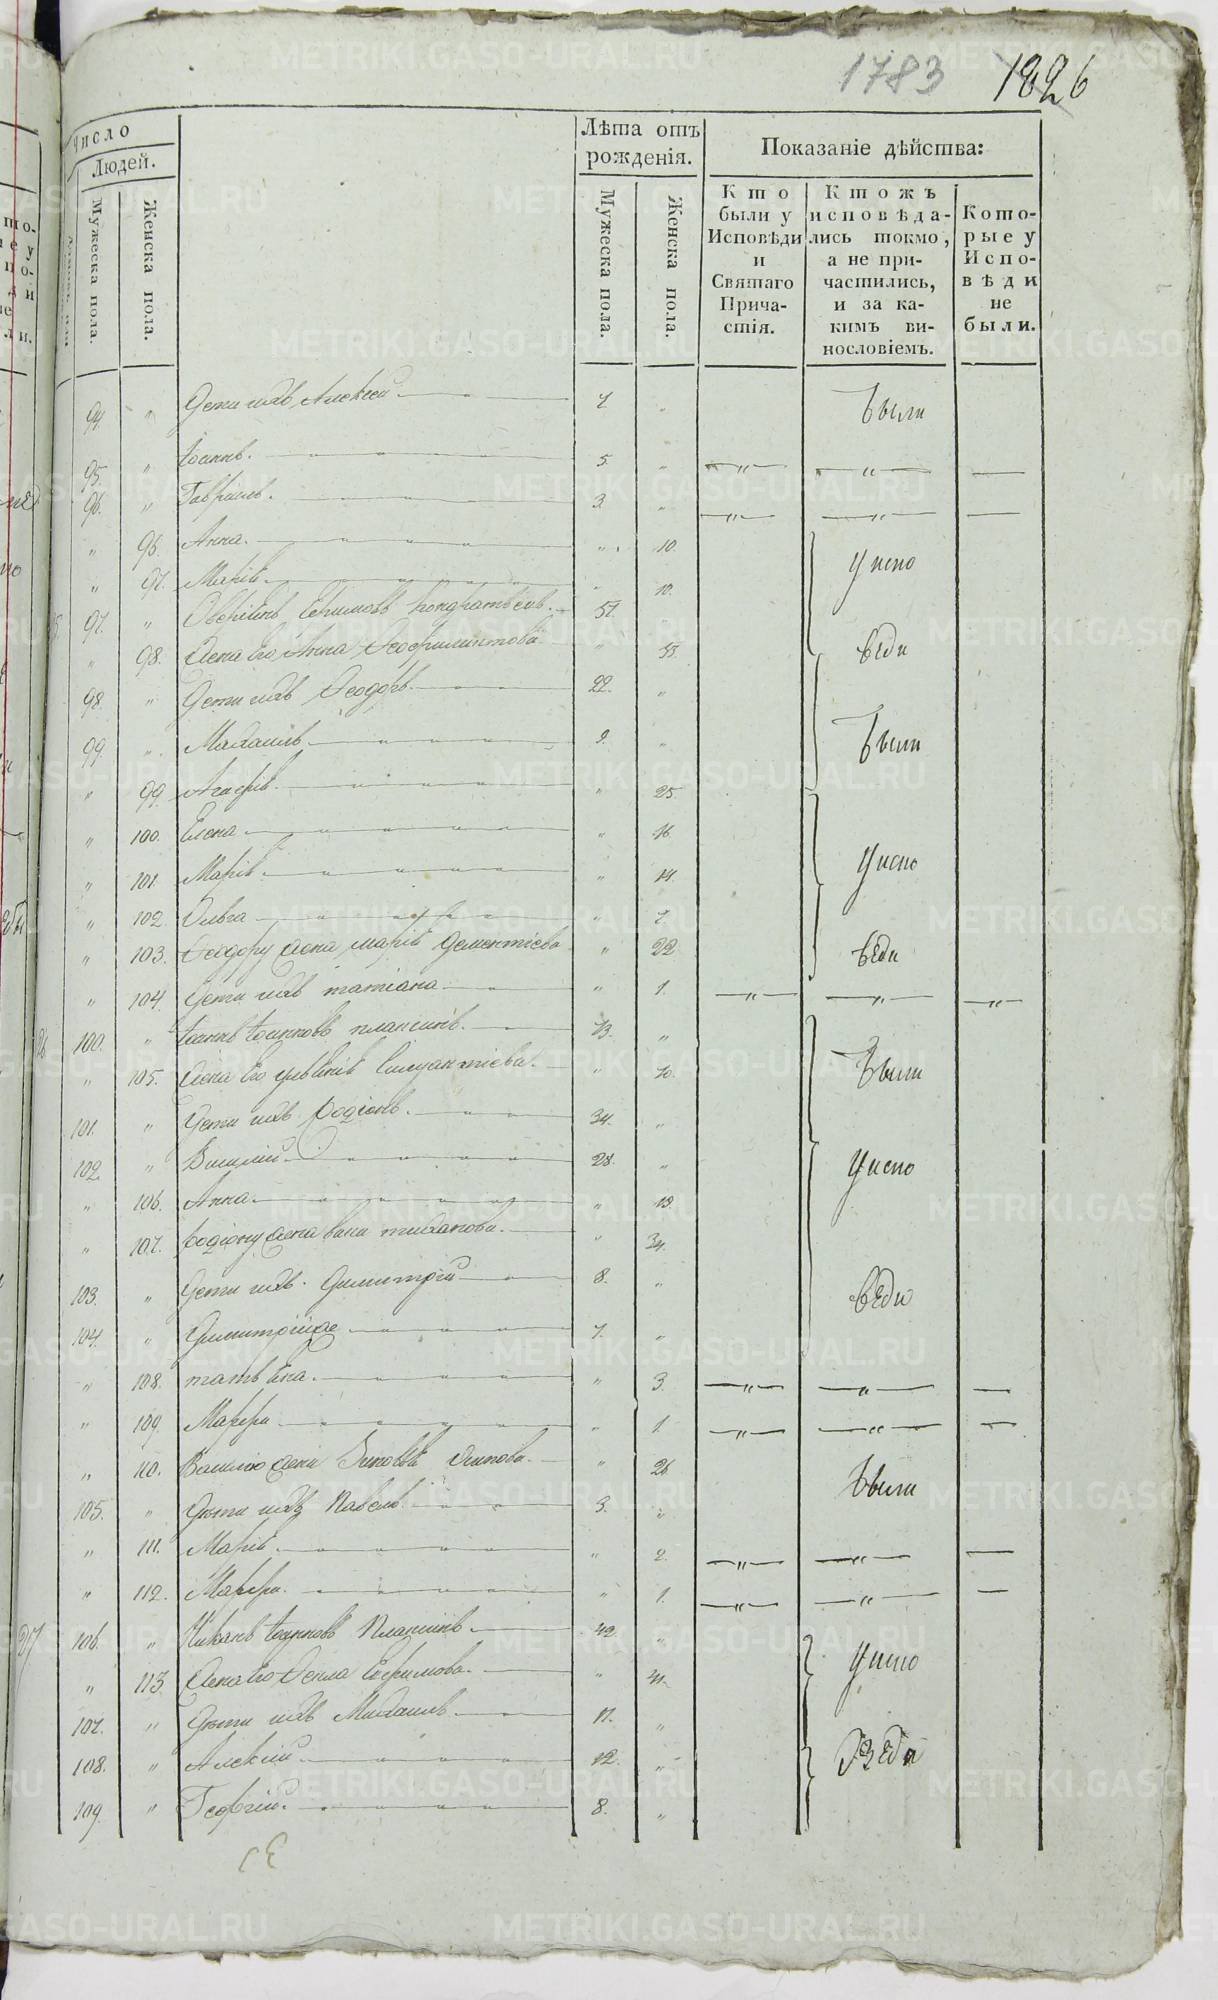 1783 1826
Число
Людей.
Мужеска пола.
Женска пола.
Лѣта отъ рожденія.
Мужеска пола.
Женска пола.
Показаніе дѣйства:
Кто были у Исповѣди и Святаго Причастія.
Ктожъ исповѣдались токмо, а не причастились, и за какимъ винословіемъ.
Которые у Исповѣди не были.
94. " Дети ихъ Алексей 7 " Были
95. " Іоаннъ. 5. "
96. " Гавріилъ. 3. "
" 96. Анна. " 10. У испо
" 97. Марія. " 10.
97. " Кондратьевъ. 57. "
" 98. Жена его Анна " 55. веди
98. " Дети ихъ Ѳеодоръ. 22. "
99. " Михаилъ 9. " Были
" 99. Агафія. " 25.
" 100. Елена " 16.
" 101. Марія. " 14. У испо
" 102. Ольга " 7.
" 103. Ѳеодору жена Марія Дементіева " 22. веди
" 104. Дети ихъ татіана " 1.
26 100. " Іоаннъ Іоанновъ плаксинъ. 73. "
" 105. Жена его " 70. Были
101. " Дети ихъ Родіонъ. 34. "
102. " Василій 28. " У испо
" 106. Анна. " 19.
" 107. Родіону жена " 34.
103. " Дети ихъ. Димитрій 8. " веди
104. " Димитрій же 7. "
" 108. татьяна. " 3.
" 109. Марфа " 1.
" 110. Василію жена Осипова. " 26. Были
105. " Дѣти ихъ Павелъ. 3. "
" 111. Марія. " 2.
" 112. Марфа. " 1.
27 106. " Іоанновъ Плаксинъ. 42. " У испо
" 113. Жена его Ефимова. " 41.
107. " Дѣти ихъ Михаилъ. 17. "
108. " Алексій 12. " веди
109. " Георгій. 8. "